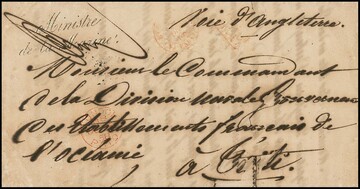 Ministre
de la Marine.
Voie d'Angleterre.
Monsieur le Commandant
de la Division navale, Gouverneur
des Etablissements français de
l'Océanie
a